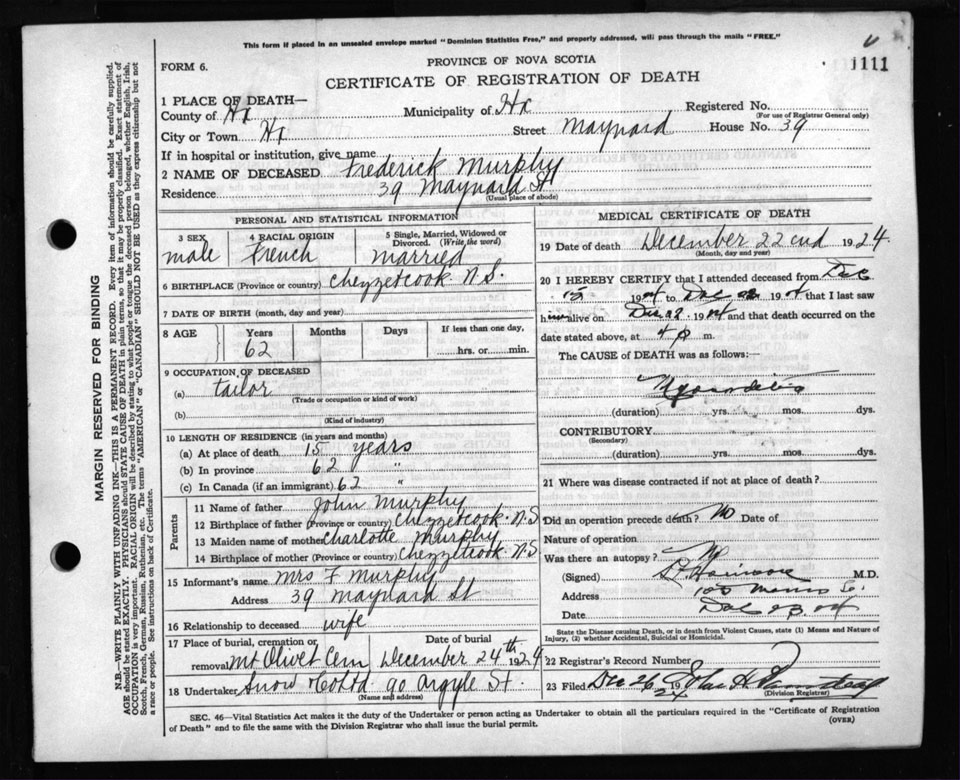 This form if placed in an unsealed envelope marked "Dominion Statistics Free," and properly addressed, will pass through the mails "FREE."
1111
FORM 6.
PROVINCE OF NOVA SCOTIA
CERTIFICATE OF REGISTRATION OF DEATH
MARGIN RESERVED FOR BINDING
N.B.—WRITE PLAINLY WITH UNFADING INK—THIS IS A PERMANENT RECORD. Every item of information should be carefully supplied.
AGE should be stated EXACTLY. PHYSICIANS should STATE CAUSE OF DEATH in plain terms, so that it may be properly classified. Exact statement of
OCCUPATION is very important. RACIAL ORIGIN will be described by stating to what people or tongue the deceased person belonged, whether English, Irish,
Scotch, French, German, Russian, Ruthenian, etc. The terms "AMERICAN" or "CANADIAN" SHOULD NOT BE USED as they express citizenship but not
a race or people. See instructions on back of Certificate.
1 PLACE OF DEATH—
County of Hx Municipality of Hx Registered No.
(For use of Registrar General only)
City or Town Hx Street Maynard House No. 39
If in hospital or institution, give name
2 NAME OF DECEASED Frederick Murphy
Residence 39 Maynard St
(Usual place of abode)
PERSONAL AND STATISTICAL INFORMATION
3 SEX male
4 RACIAL ORIGIN French
5 Single, Married, Widowed or Divorced. (Write the word) married
6 BIRTHPLACE (Province or country) Chezzetcook N.S.
7 DATE OF BIRTH (month, day and year)
8 AGE Years Months Days If less than one day,
62 hrs. or min.
9 OCCUPATION OF DECEASED
(a) tailor
(Trade or occupation or kind of work)
(b)
(Kind of industry)
10 LENGTH OF RESIDENCE (in years and months)
(a) At place of death 15 years
(b) In province 62 "
(c) In Canada (if an immigrant) 62 "
Parents
11 Name of father John Murphy
12 Birthplace of father (Province or country) Chezzetcook N.S
13 Maiden name of mother Charlotte Murphy
14 Birthplace of mother (Province or country) Chezzetcook N.S
15 Informant's name Mrs F Murphy
Address 39 Maynard St
16 Relationship to deceased wife
17 Place of burial, cremation or Date of burial
removal Mt Olivet Cem December 24th 1924
18 Undertaker Snow & Co Ltd 90 Argyle St.
(Name and address)
MEDICAL CERTIFICATE OF DEATH
19 Date of death December 22nd 1924.
(Month, day and year)
20 I HEREBY CERTIFY that I attended deceased from Dec
15 1924 to Dec 22 1924 that I last saw
him alive on Dec 22 1924 and that death occurred on the
date stated above, at 4 p m.
The CAUSE OF DEATH was as follows:
Myocarditis
(duration) yrs. mos. dys.
CONTRIBUTORY
(Secondary)
(duration) yrs. mos. dys.
21 Where was disease contracted if not at place of death?
Did an operation precede death? No Date of
Nature of operation
Was there an autopsy? No
(Signed) M.D.
Address 100 Morris St.
Date Dec 23. 24
State the Disease causing Death, or in death from Violent Causes, state (1) Means and Nature of
Injury, (2) whether Accidental, Suicidal or Homicidal.
22 Registrar's Record Number
23 Filed Dec 26 1924 John H
(Division Registrar)
SEC. 46—Vital Statistics Act makes it the duty of the Undertaker or person acting as Undertaker to obtain all the particulars required in the "Certificate of Registration
of Death" and to file the same with the Division Registrar who shall issue the burial permit. (OVER)